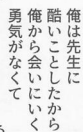 俺は先生に
酷いことしたから
俺から会いにいく
勇気がなくて